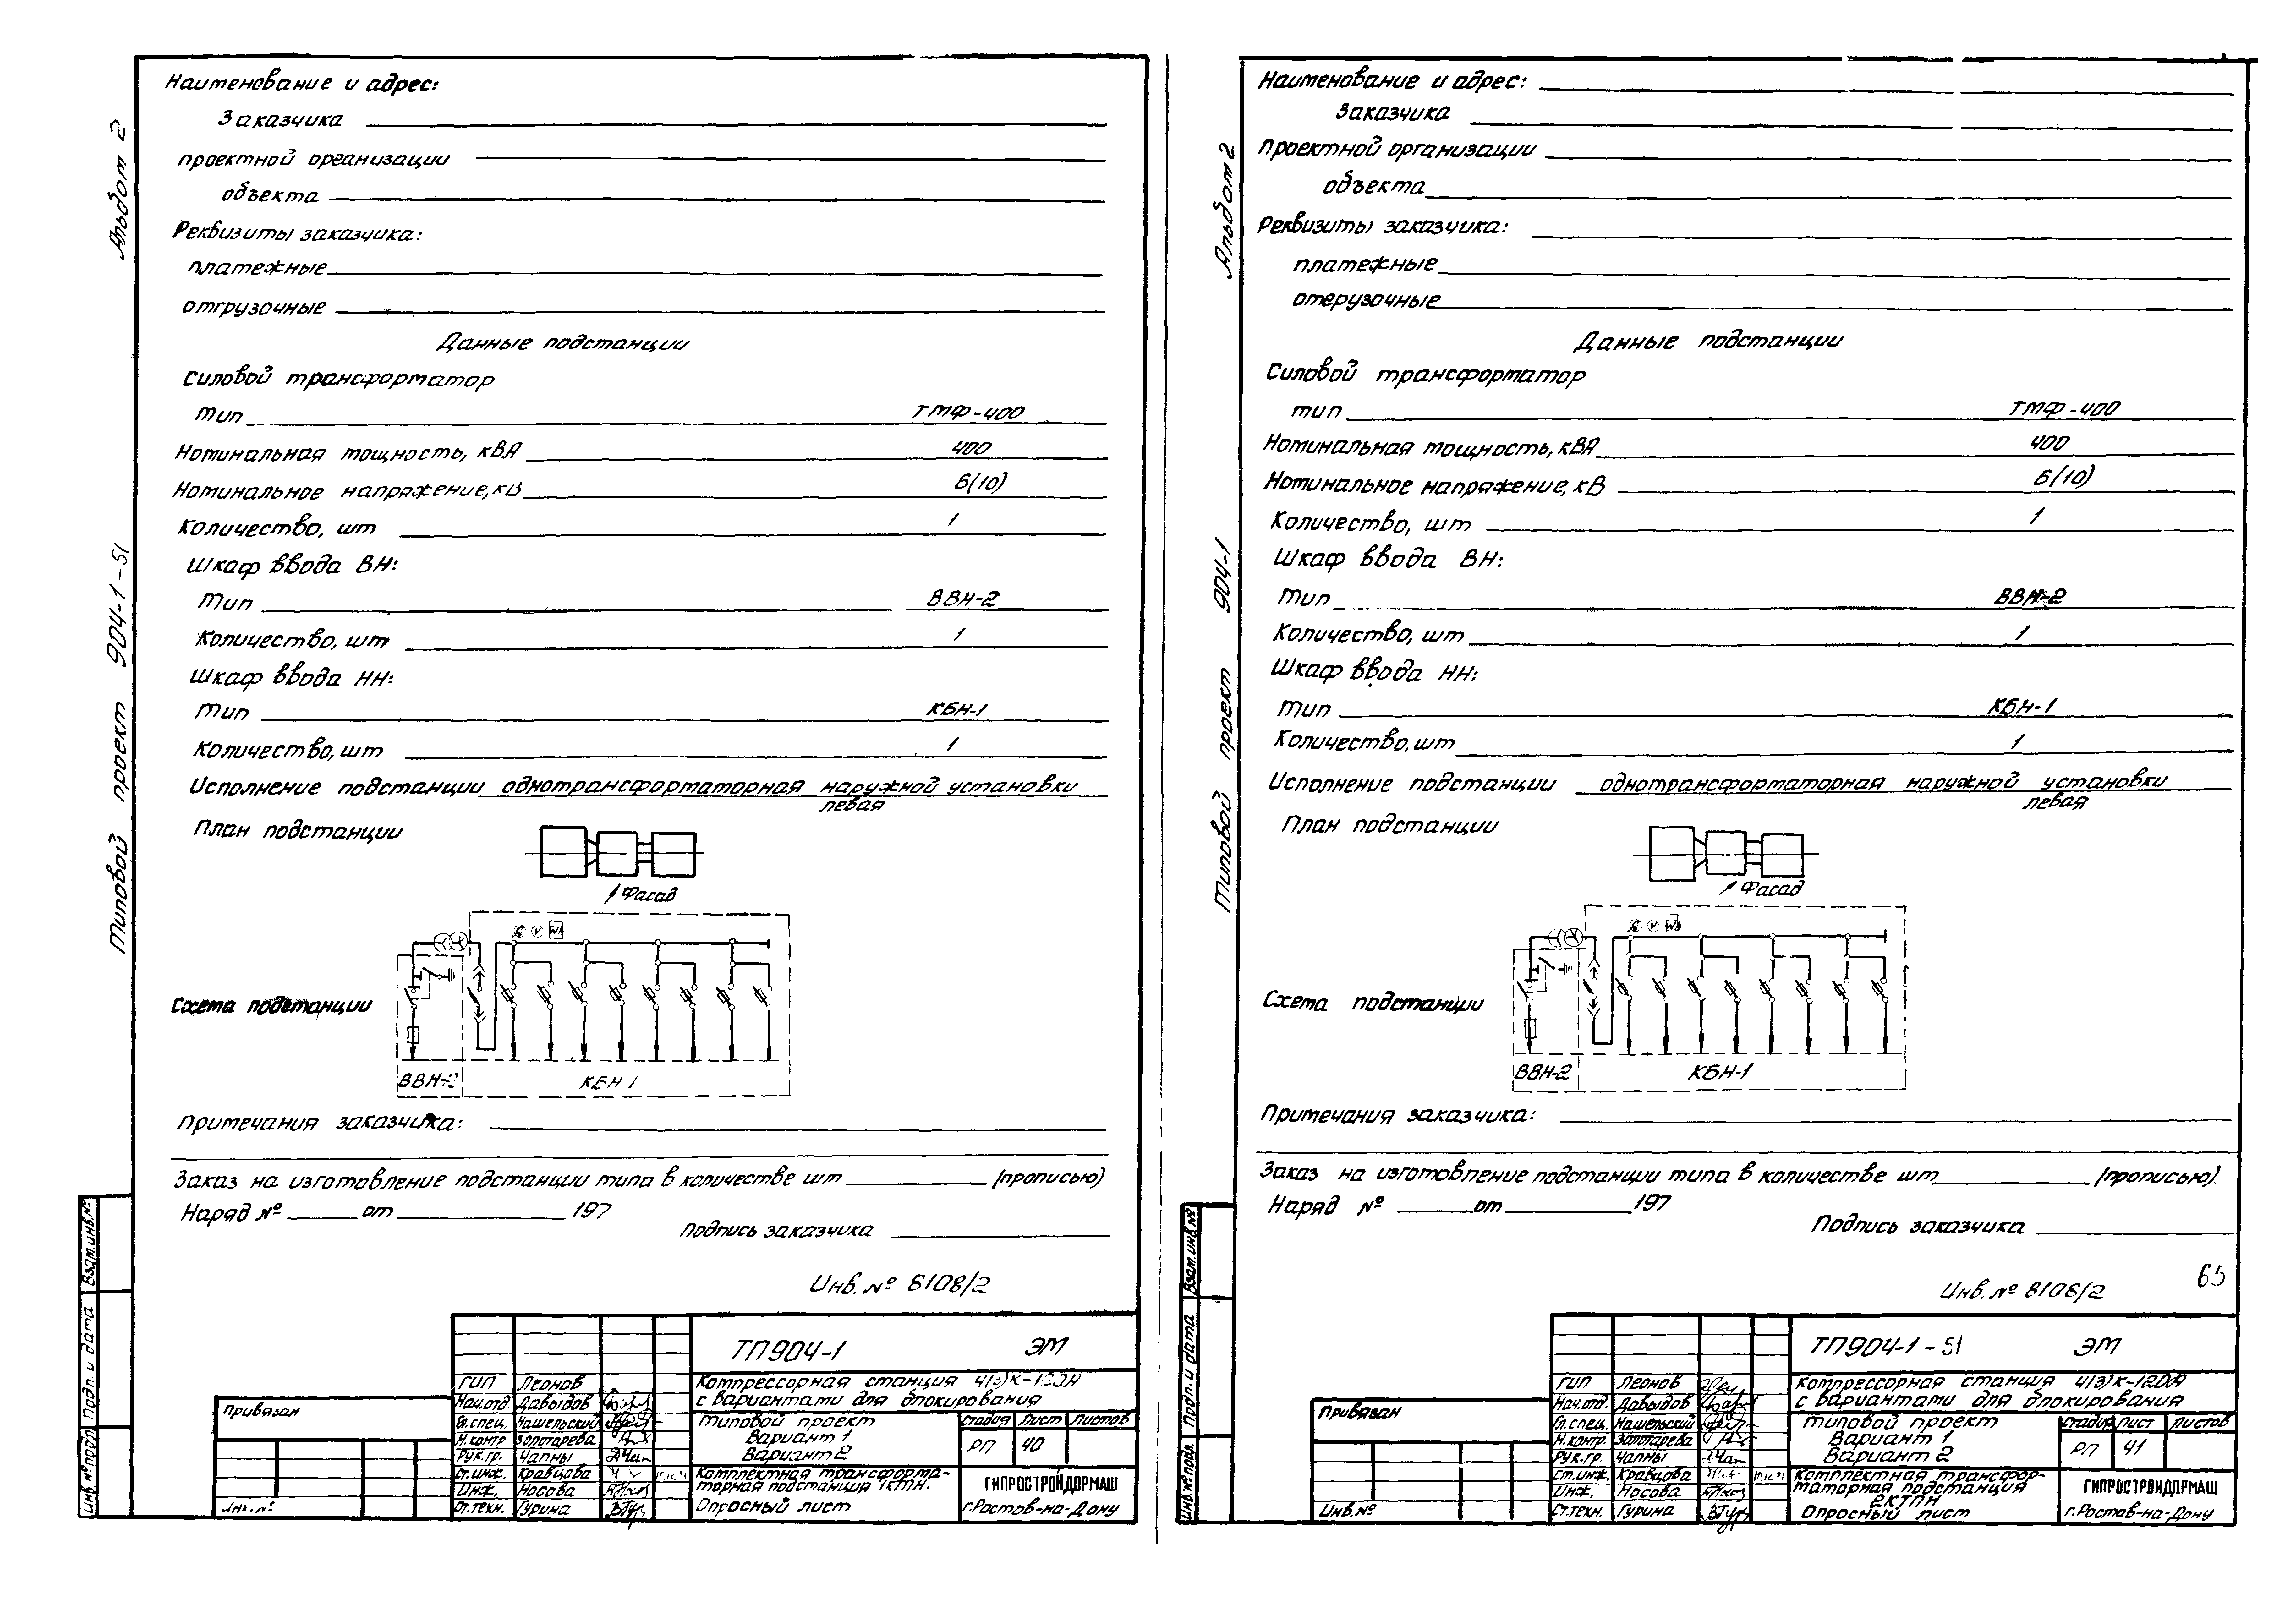 Альбом 2
Типовой проект 904-1-51
Наименование и адрес:
Заказчика
проектной организации
объекта
Реквизиты заказчика:
платежные
отгрузочные
Данные подстанции
Силовой трансформатор
тип ТМФ-400
Номинальная мощность, кВА 400
Номинальное напряжение, кВ 6(10)
Количество, шт 1
Шкаф ввода ВН:
Тип ВВН-2
Количество, шт 1
Шкаф ввода НН:
Тип КБН-1
Количество, шт 1
Исполнение подстанции однотрансформаторная наружной установки
левая
План подстанции
Фасад
Схема подстанции
ВВН-2 КБН 1
Примечания заказчика:
Заказ на изготовление подстанции типа в количестве шт (прописью)
Наряд № от 197
Подпись заказчика
Инв. № 8108/2
Взам.инв.№
Подп. и дата
Инв.№подл
Привязан
Инв.№
ТП904-1 ЭМ
ГИП Леонов
Нач.отд. Давыдов
Гл.спец. Нашельский
Н.контр Золотарева
Рук.гр. Чапны
Ст.инж. Кравцова
Инж. Носова
Ст.техн. Гурина
Компрессорная станция 4(3)К-120А
с вариантами для блокирования
типовой проект
Вариант 1
Вариант 2
Стадия Лист Листов
РП 40
Комплектная трансформа-
торная подстанция 1КТПН.
Опросный лист
ГИПРОСТРОЙДОРМАШ
г.Ростов-на-Дону
Альбом 2
Типовой проект 904-1
Наименование и адрес:
Заказчика
Проектной организации
объекта
Реквизиты заказчика:
платежные
отгрузочные
Данные подстанции
Силовой трансформатор
тип ТМФ-400
Номинальная мощность, кВА 400
Номинальное напряжение, кВ 6(10)
Количество, шт 1
Шкаф ввода ВН:
Тип ВВН-2
Количество, шт 1
Шкаф ввода НН:
Тип КБН-1
Количество, шт 1
Исполнение подстанции однотрансформаторная наружной установки
левая
План подстанции
Фасад
Схема подстанции
ВВН-2 КБН-1
Примечания заказчика:
Заказ на изготовление подстанции типа в количестве шт (прописью).
Наряд № от 197
Подпись заказчика
Инв. № 8108/2
65
Взам.инв.№
Подп. и дата
Инв.№ подл.
Привязан
Инв.№
ТП904-1-51 ЭМ
ГИП Леонов
Нач.отд. Давыдов
Гл.спец. Нашельский
Н.контр. Золотарева
Рук.гр. Чапны
Ст.инж. Кравцова
Инж. Носова
Ст.техн. Гурина
Компрессорная станция 4(3)К-120А
с вариантами для блокирования
типовой проект
Вариант 1
Вариант 2
Стадия Лист Листов
РП 41
Комплектная трансфор-
маторная подстанция
2КТПН
Опросный лист
ГИПРОСТРОЙДОРМАШ
г.Ростов-на-Дону